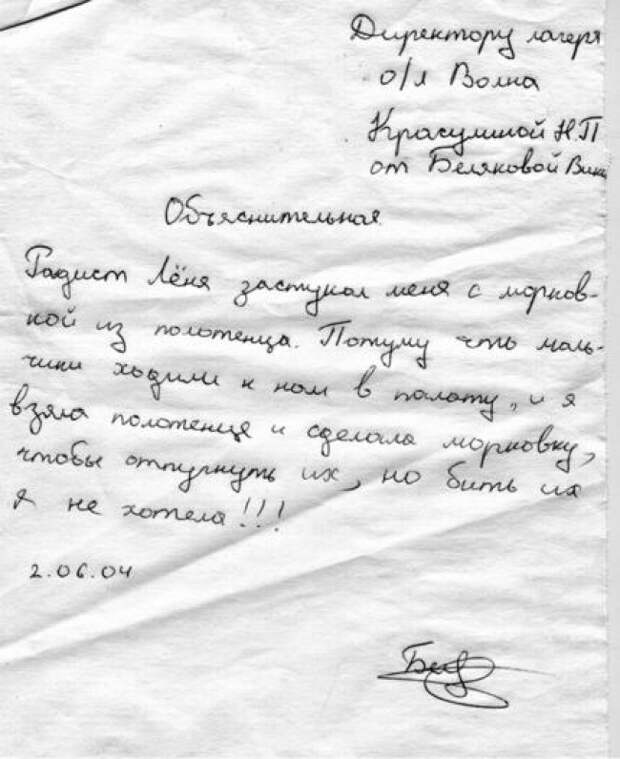 Директору лагеря
о/л Волна
Красушиной Н.П
от Беляковой Вики
Объяснительная
Радист Лёня застукал меня с морков-
кой из полотенца. Потуму что маль-
чики ходили к нам в палату, и я
взяла полотенце и сделала морковку,
чтобы отпугнуть их, но бить их
я не хотела!!!
2.06.04